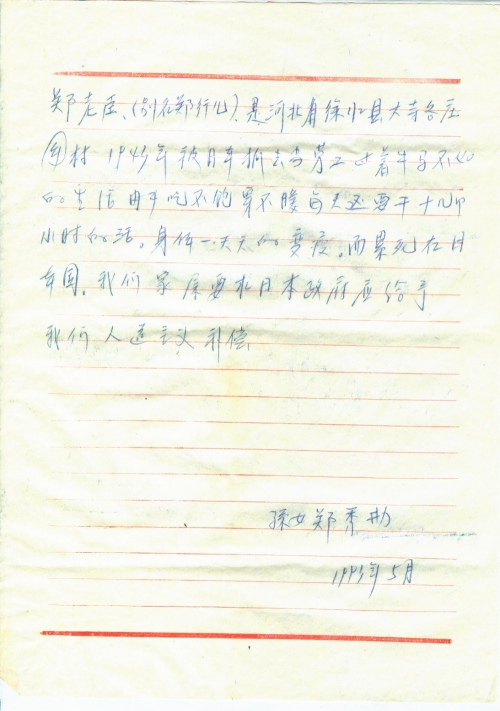 郑老臣、(别名郑行儿)、是河北省徐水县大寺各庄
村 1943年被日本抓去当劳工 过着牛马不如
的生活 由于吃不饱 累不 每天还要干十几个
小时的活。身体一天天的变瘦。而累死在日
本国。我们家属要求日本政府应给予
我们人道主义补偿
孙女郑秀
1993年5月